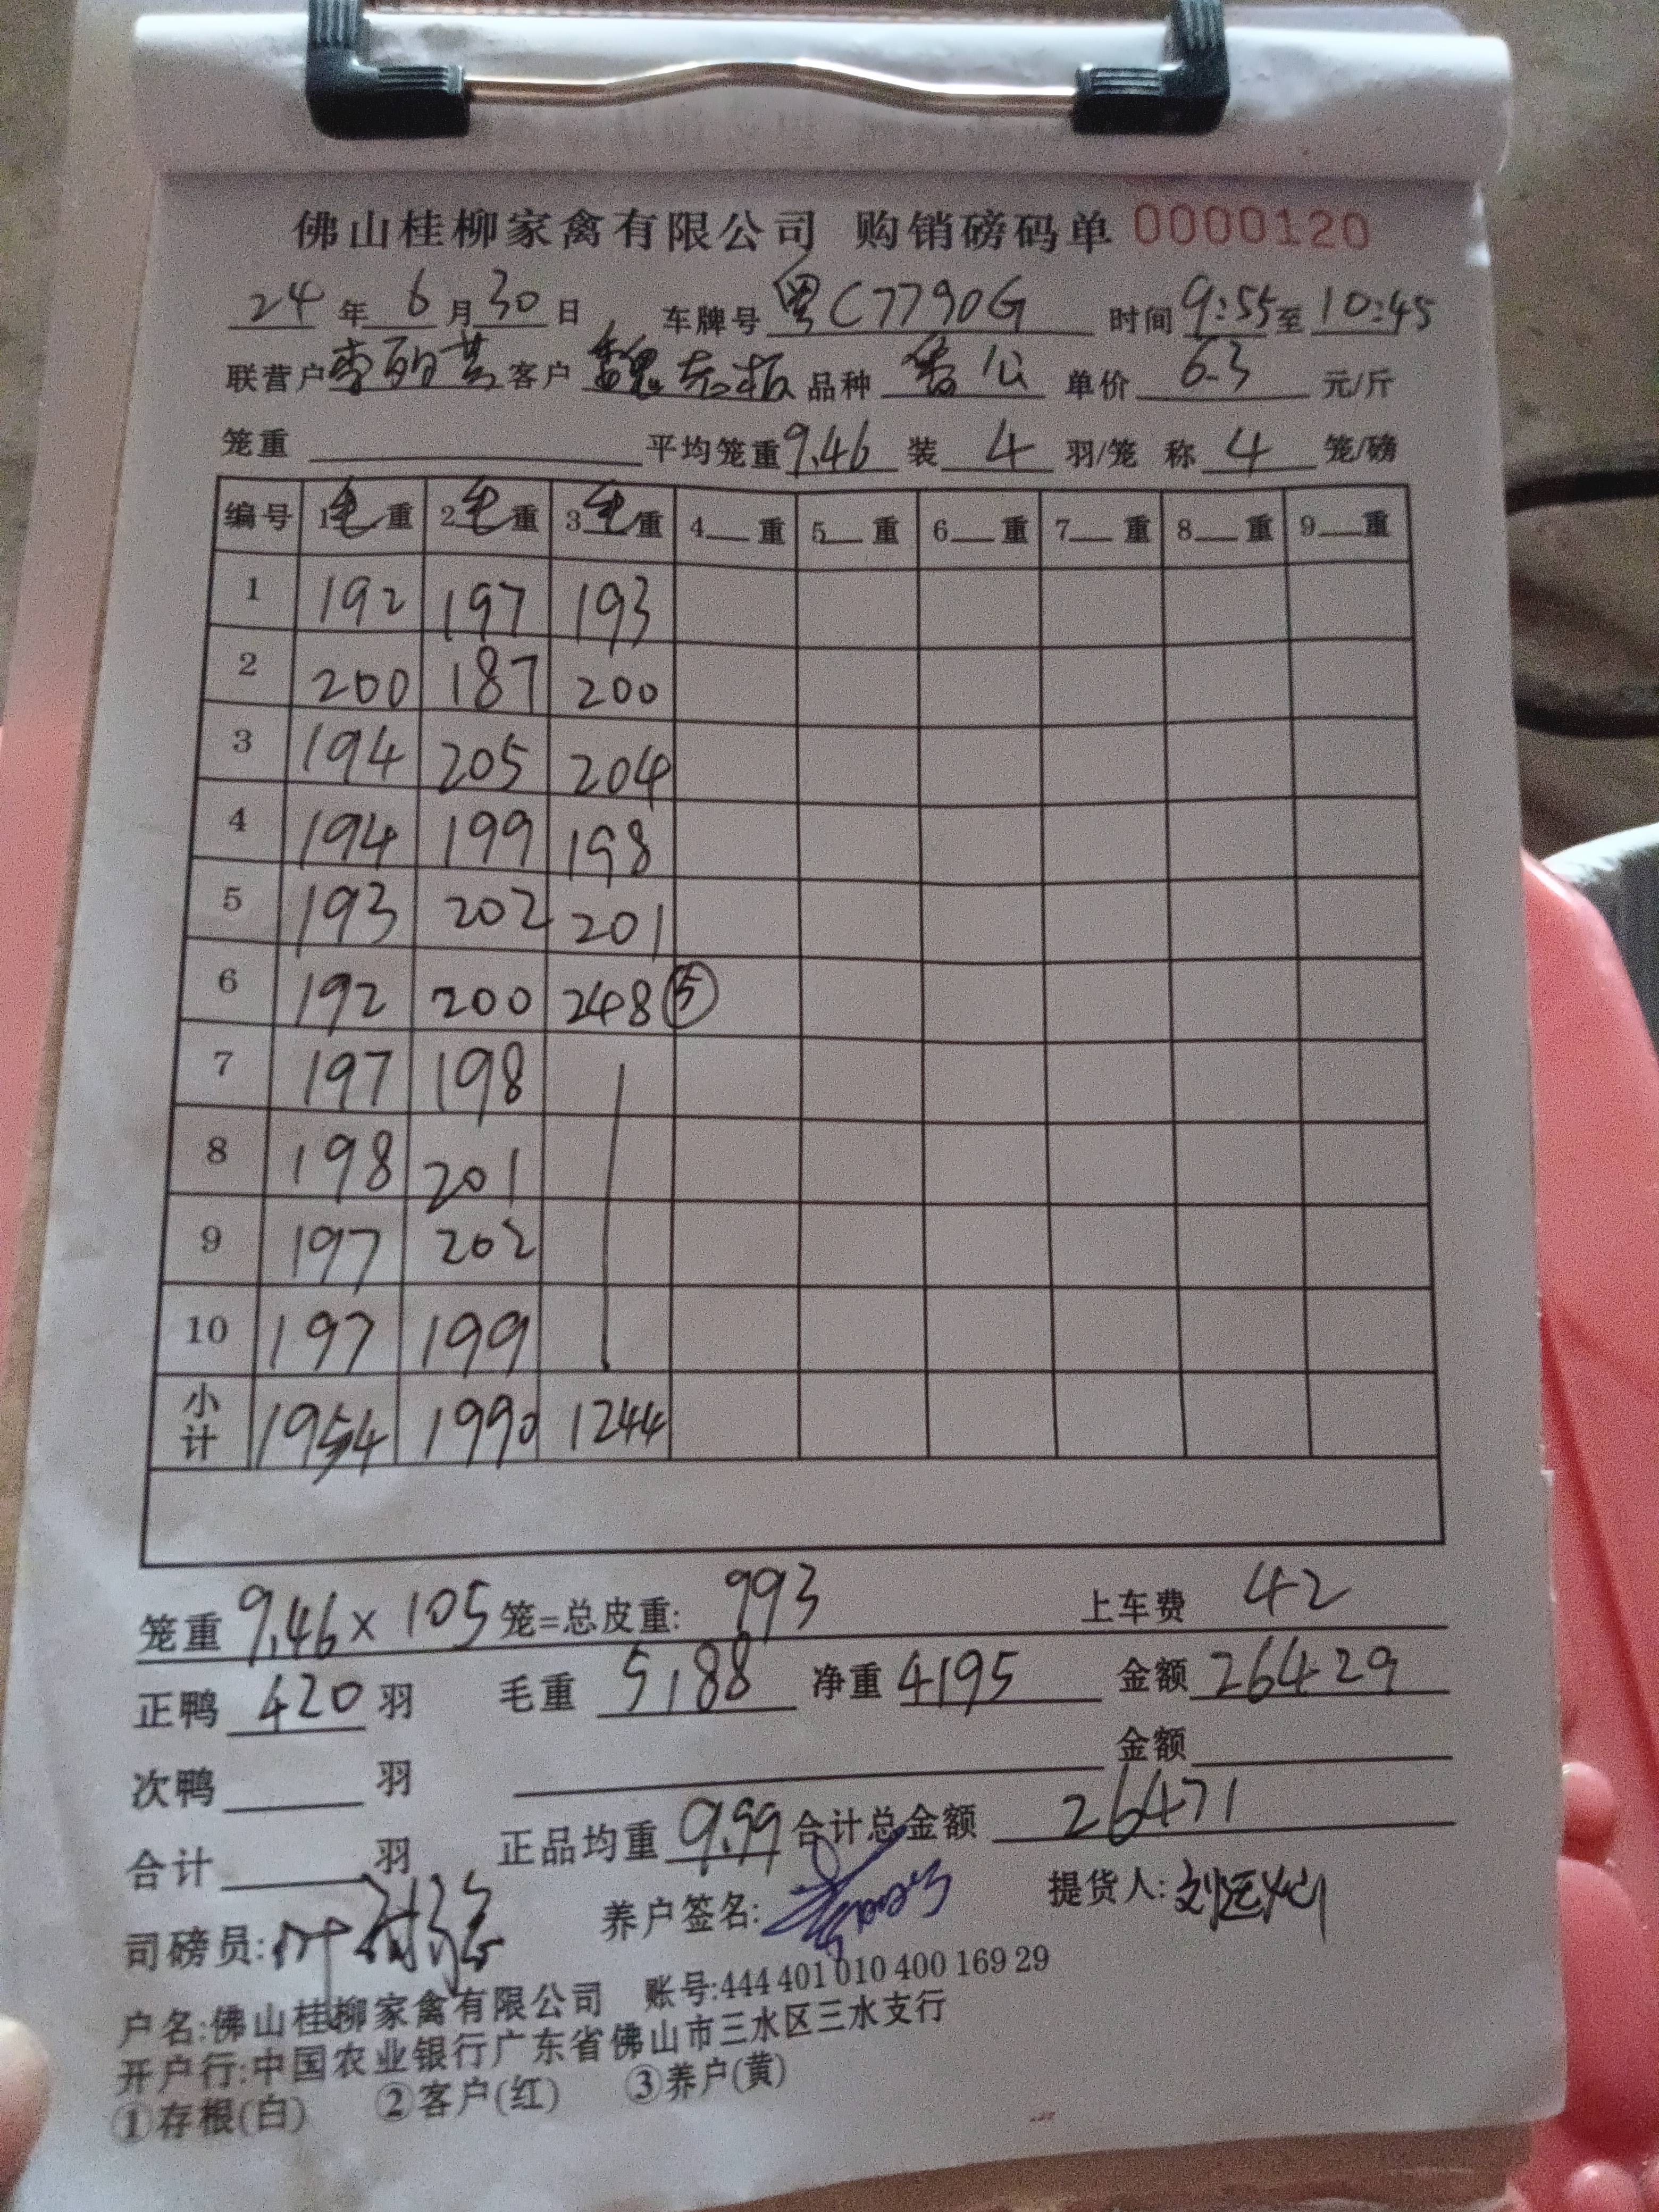 佛山桂柳家禽有限公司 购销磅码单 0000120
24 年 6 月 30 日 车牌号 粤C7790G 时间 9:55 至 10:45
联营户 李丽芳 客户 魏老板 品种 番公 单价 6.3 元/斤
笼重 平均笼重 9.46 装 4 羽/笼 称 4 笼/磅
编号 1毛重 2毛重 3毛重 4 重 5 重 6 重 7 重 8 重 9 重
1 192 197 193
2 200 187 200
3 194 205 204
4 194 199 198
5 193 202 201
6 192 200 248 ⑤
7 197 198
8 198 201
9 197 202
10 197 199
小计 1954 1990 1244
笼重 9.46 × 105 笼=总皮重: 993 上车费 42
正鸭 420 羽 毛重 5188 净重 4195 金额 26429
次鸭 羽 金额
合计 羽 正品均重 9.99 合计总金额 26471
司磅员: 养户签名: 提货人:
户名:佛山桂柳家禽有限公司 账号:444 401 010 400 169 29
开户行:中国农业银行广东省佛山市三水区三水支行
①存根(白) ②客户(红) ③养户(黄)